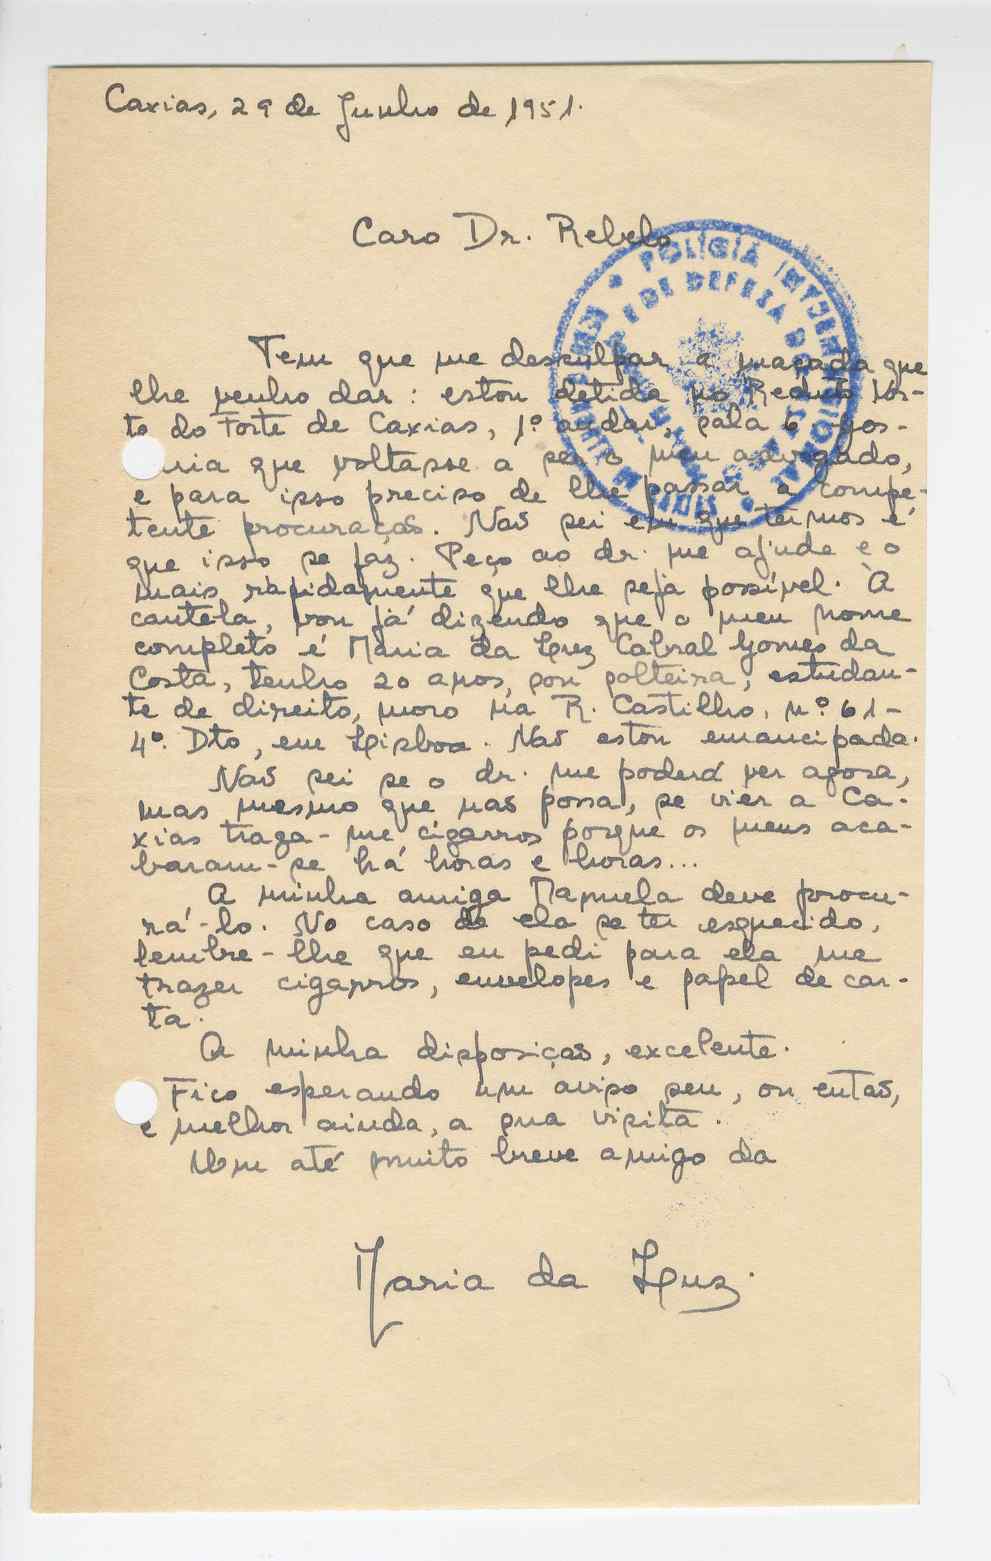 Caxias, 29 de Junho de 1951.
Caro Dr. Rebelo
Tem que me desculpar a maçada que
lhe venho dar: estou detida no Reduto Nor-
te do Forte de Caxias, 1º andar, sala 6. Gos-
aria que voltasse a ser o meu advogado,
e para isso preciso de lhe passar a compe-
tente procuração. Não sei em que termos é
que isso se faz. Peço ao dr. me ajude e o
mais rapidamente que lhe seja possível. À
cautela, vou já dizendo que o meu nome
completo é Maria da Luz Cabral Gomes da
Costa, tenho 20 anos, sou solteira, estudan-
te de direito, moro na R. Castilho, nº 61-
4º. Dto, em Lisboa. Não estou emancipada.
Não sei se o dr. me poderá ver agora,
mas mesmo que não possa, se vier a Ca-
xias traga-me cigarros porque os meus aca-
baram-se há horas e horas...
A minha amiga Manuela deve procu-
rá-lo. No caso de ela se ter esquecido,
lembre-lhe que eu pedi para ela me
trazer cigarros, envelopes e papel de car-
ta.
A minha disposição, excelente.
Fico esperando um aviso seu, ou então,
e melhor ainda, a sua visita.
Um até muito breve amigo da
Maria da Luz.
POLÍCIA INTERNACIONAL
E DE DEFESA DO